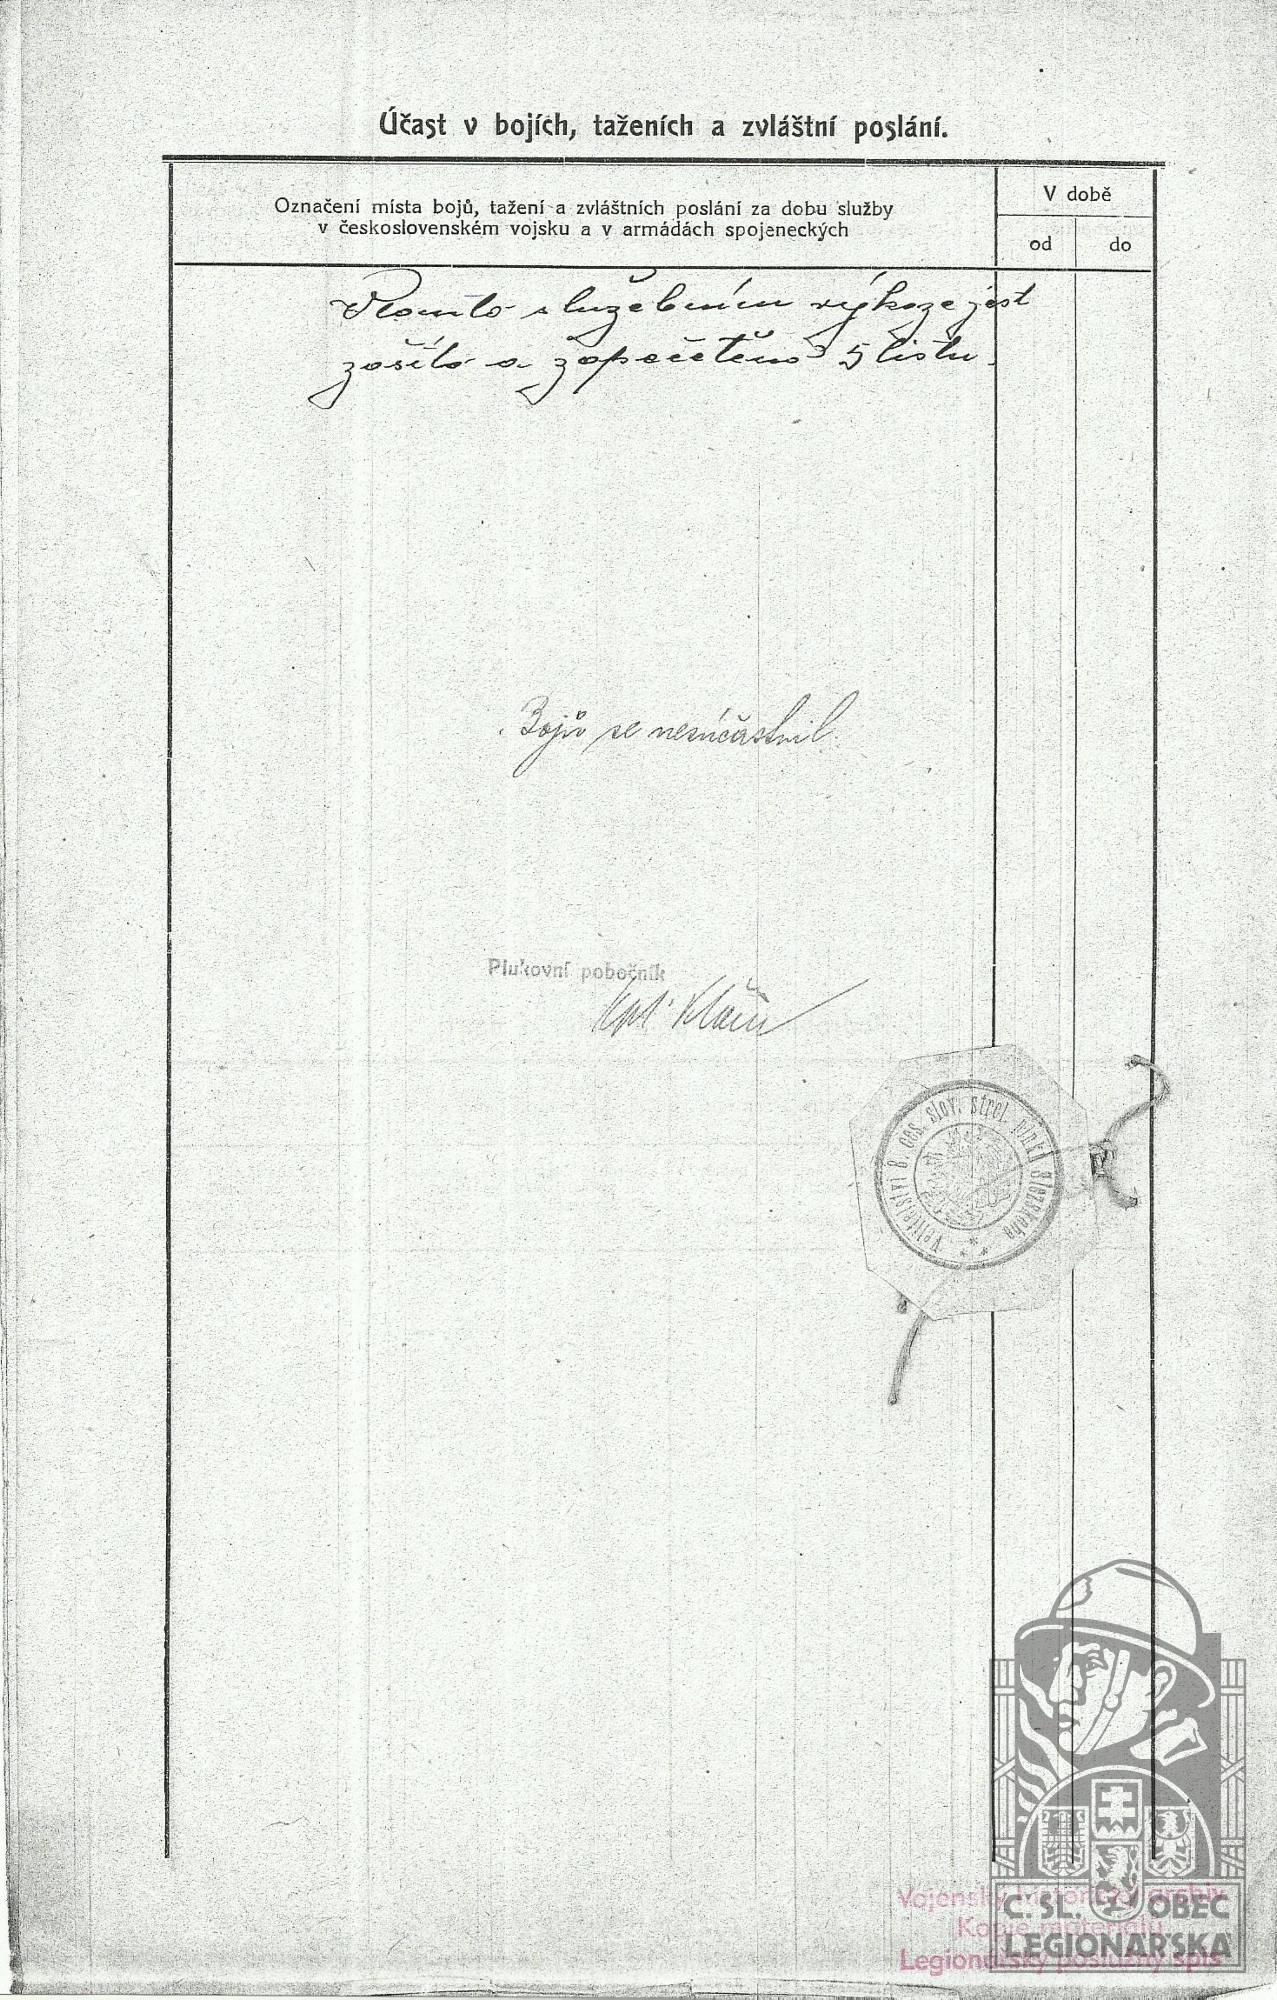 Účast v bojích, taženích a zvláštní poslání.
Označení místa bojů, tažení a zvláštních poslání za dobu služby
v československém vojsku a v armádách spojeneckých
V době
od
do
V tomto služebním výkaze jest
zašito a zapečetěno 5 listů.
Bojů se nesúčastnil.
Plukovní pobočník
kpt.
Velitelství 8. čes. slov. střel. pluku Slezského
Vojenský historický archiv
Kopie materiálu
Legionářský poslužný spis
Č. SL. OBEC
LEGIONÁŘSKÁ